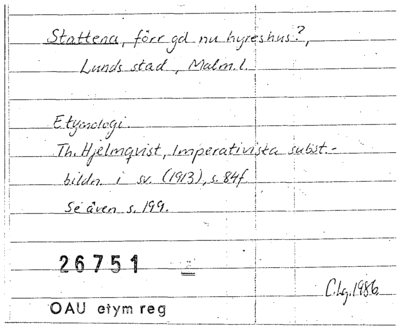 Stattena, förr gd nu hyreshus?,
Lunds stad, Malm.l.
Etymologi.
Th. Hjelmqvist, Imperativista subst.-
bildn. i sv. (1913), s. 84f.
Se även s. 199.
26751
C.Lg. 1986
OAU etym reg